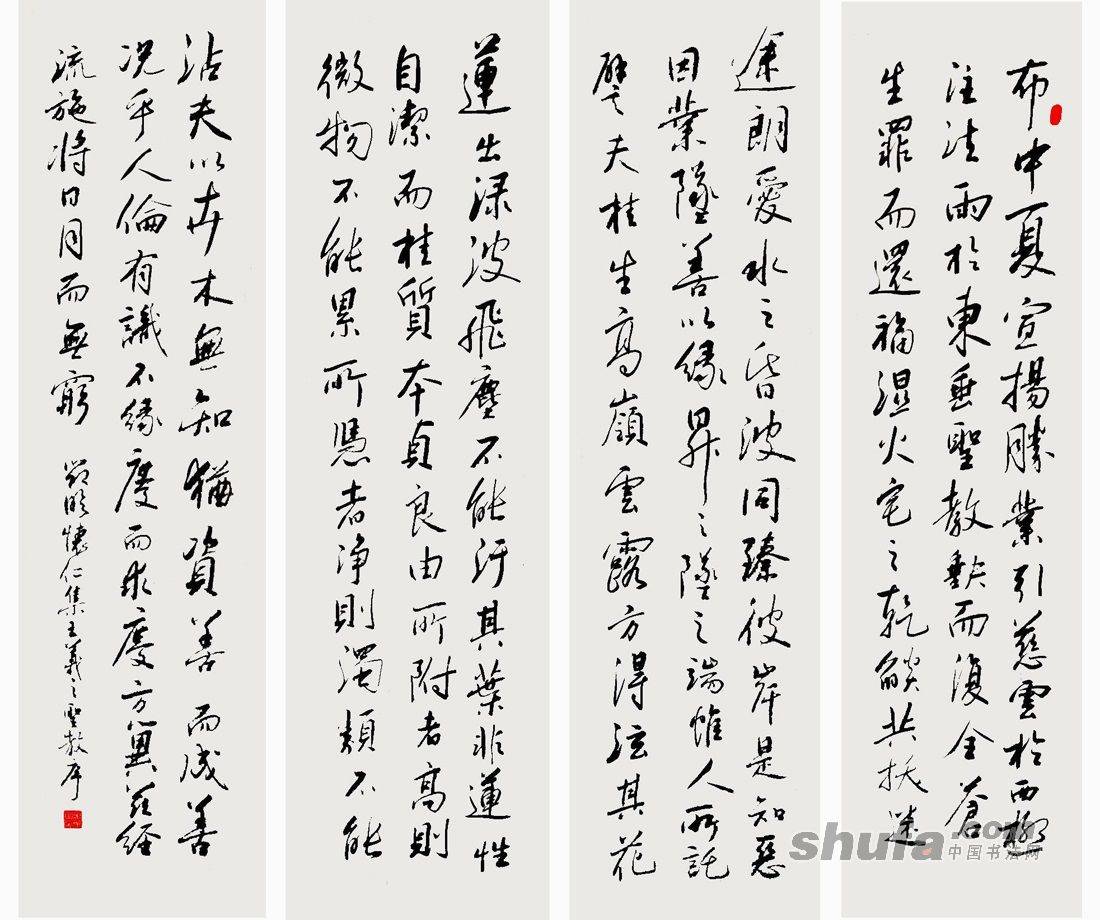 布中夏宣揚勝業引慈雲於西極
注法雨於東垂聖教缺而復全蒼
生罪而還福濕火宅之乾燄共拔迷
途朗愛水之昏波同臻彼岸是知惡
因業墜善以緣昇之墜之端惟人所託
譬夫桂生高嶺雲露方得泫其花
蓮出淥波飛塵不能汙其葉非蓮性
自潔而桂質本貞良由所附者高則
微物不能累所憑者淨則濁類不能
沾夫以卉木無知猶資善而成善
況乎人倫有識不緣慶而求慶方冀茲經
流施將日月而無窮
懷仁集王羲之聖教序
shufa.com
中国书法网